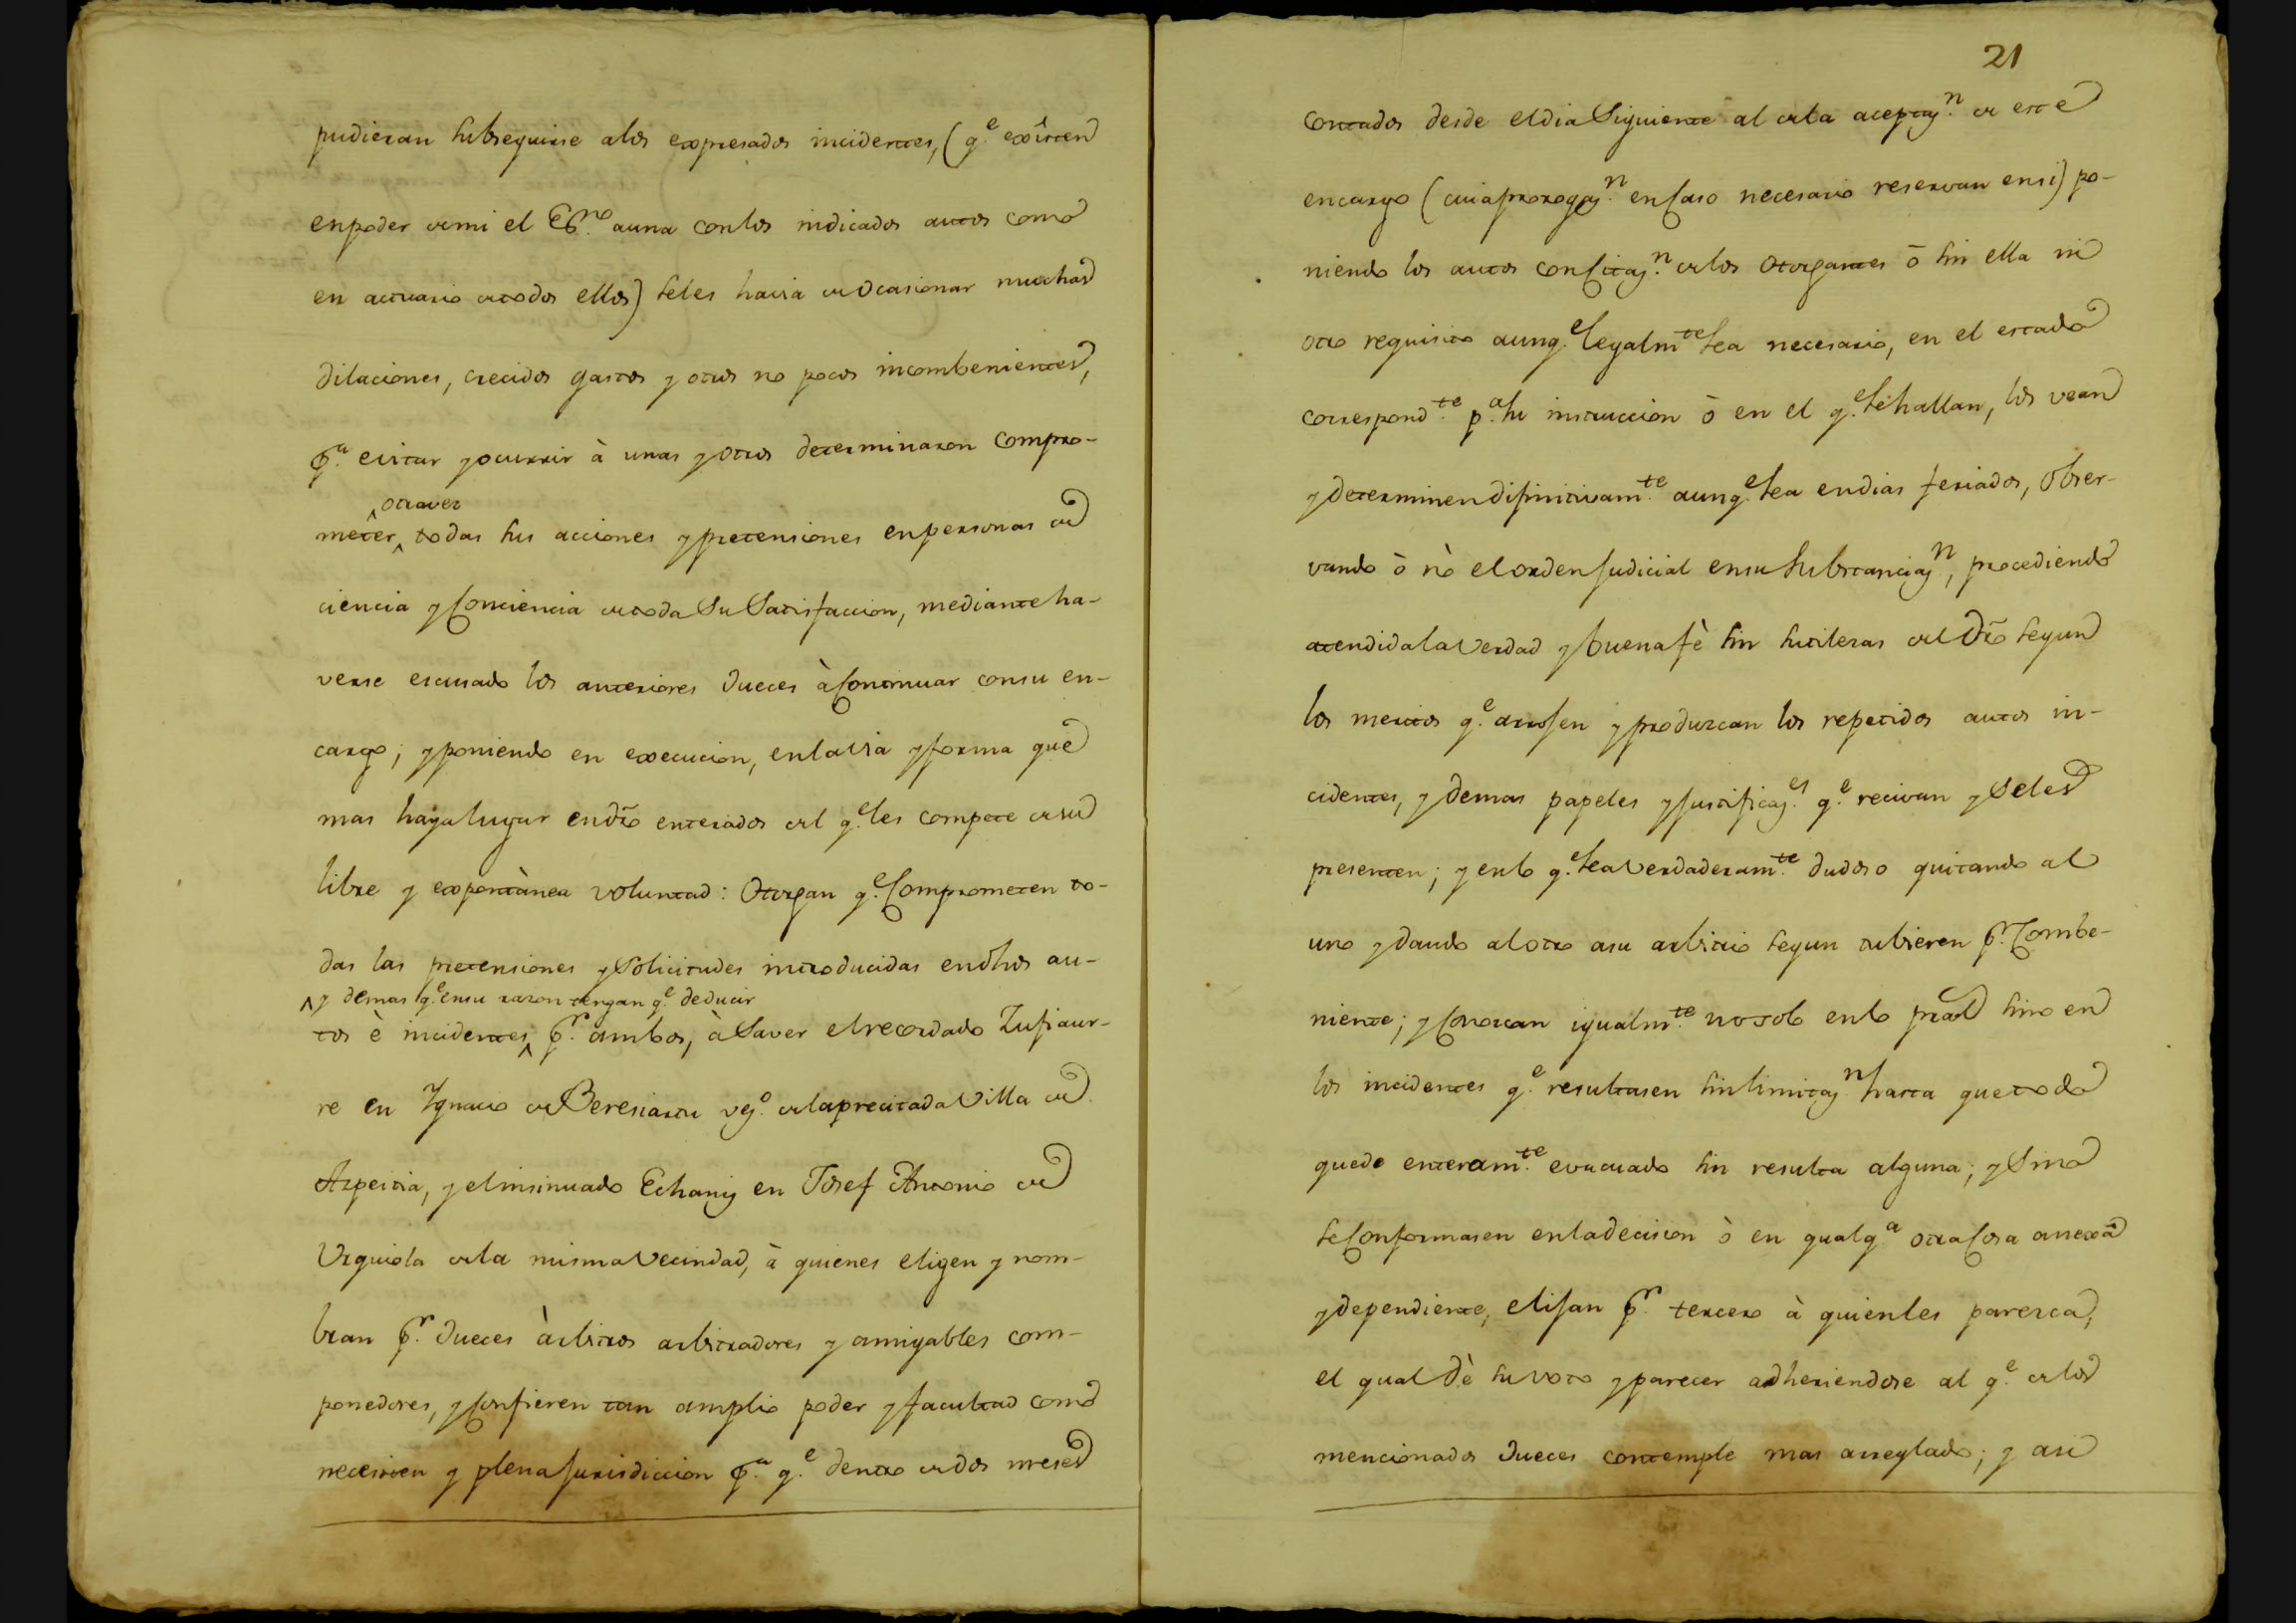 pudieran subseguirse a los expresados incidentes, (q.e existen
en poder de mi el Es.no a una con los indicados autos como
en actuario de todos ellos) se les havia de ocasionar muchas
dilaciones, crecidos gastos y otros no pocos incombenientes,
p.a evitar y ocurrir à unas y otros determinaron compro-
otra vez
meter, todas sus acciones y pretensiones en personas de
ciencia y Conciencia de toda Su Satisfaccion, mediante ha-
verse escusado los anteriores Jueces à Continuar con su en-
cargo; y poniendo en execucion, en la via y forma que
mas haya lugar en dro enterados del q.e les compete de su
libre y expontànea voluntad: Otorgan q.e Comprometen to-
das las pretensiones y Solicitudes introducidas en dhos au-
y demas q.e en su razon tengan q.e deducir
tos è incidentes, p.r ambos, à Saver el recordado Zufiaur-
re en Ygnacio de Beresiartu vz.o de la precitada Villa de
Azpeitia, y el insinuado Echaniz en Josef Antonio de
Urquiola de la misma Vecindad, à quienes eligen y nom-
bran p.r Jueces àrbitros arbitradores y amigables com-
ponedores, y Confieren tan amplio poder y facultad como
necesiten y plena Jurisdiccion p.a q.e dentro de dos meses
21
Contados desde el dia Siguiente al de la aceptaz.n de este
encargo (cuia prorogaz.n en Caso necesario reservan en si) po-
niendo los autos con Citaz.n de los Otorgantes ò sin ella ni
otro requisito aunq.e legalm.te sea necesario, en el estado
correspond.te p.a su instruccion ò en el q.e se hallan, los vean
y determinen difinitivam.te aunq.e sea en dias feriados, obser-
vando ò nò el orden Judicial en su Substanciaz.n, procediendo
atendida la Verdad y buena fè sin sutilezas del Dro segun
los meritos q.e arrojen y produzcan los repetidos autos in-
cidentes, y demas papeles y Justificaz.es q.e recivan y Se les
presenten; y en lo q.e sea Verdaderam.te dudoso quitando al
uno y dando al otro a su arbitrio segun tubieren p.r Combe-
niente; y Conozcan igualm.te no solo en lo pral sino en
los incidentes q.e resultasen sin limitaz.n hasta que todo
quede enteram.te evacuado sin resulta alguna; y Si no
se Conformasen en la decision ò en qualq.a otra Cosa anexa
y dependiente, elijan p.r tercero à quien les paresca,
el qual dè su voto y parecer adheriendose al q.e de los
mencionados Jueces contemple mas arreglado; y asi